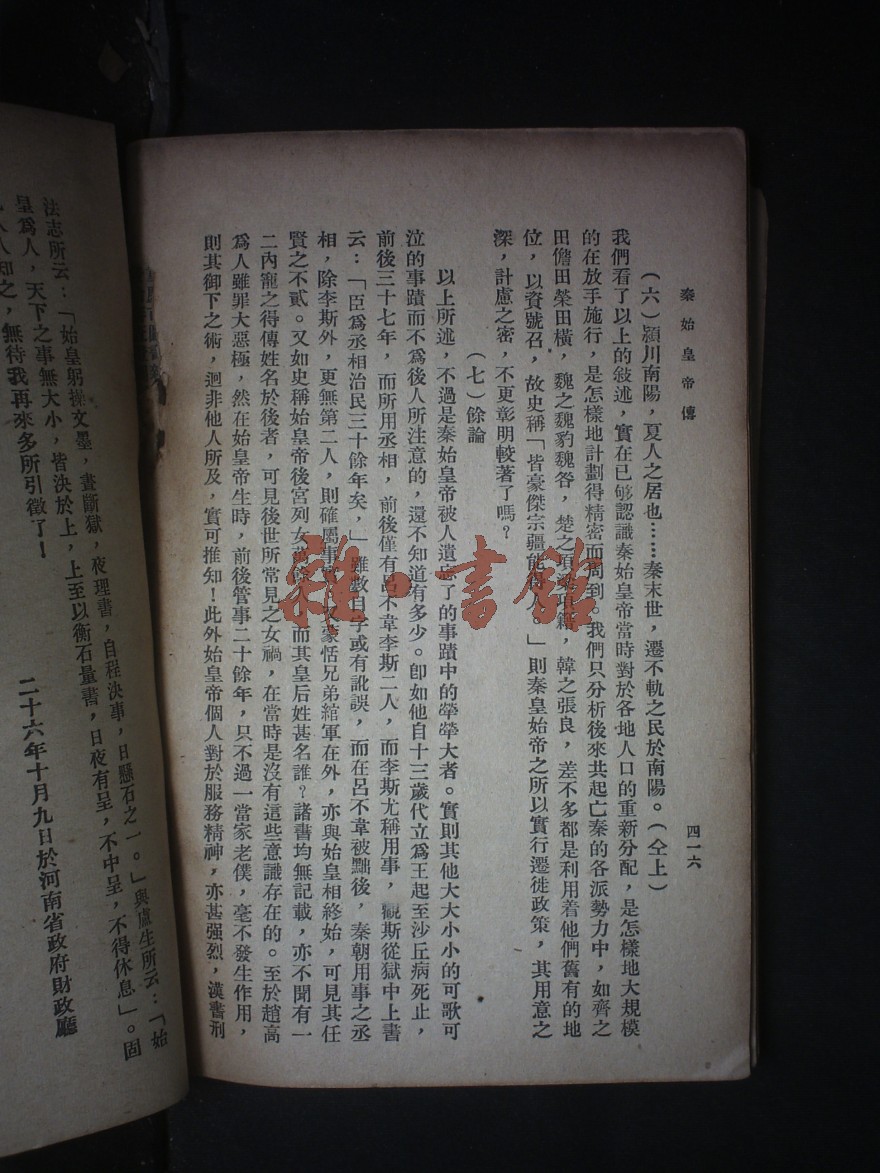 秦始皇帝傳
四一六
（六）潁川南陽，夏人之居也……秦末世，遷不軌之民於南陽。（仝上）
我們看了以上的敍述，實在已够認識秦始皇帝當時對於各地人口的重新分配，是怎樣地大規模
的在放手施行，是怎樣地計劃得精密而周到。我們只分析後來共起亡秦的各派勢力中，如齊之
田儋田榮田橫，魏之魏豹魏咎，楚之項梁項籍，韓之張良，差不多都是利用着他們舊有的地
位，以資號召，故史稱「皆豪傑宗疆能得人。」則秦皇始帝之所以實行遷徙政策，其用意之
深，計慮之密，不更彰明較著了嗎？
（七）餘論
以上所述，不過是秦始皇帝被人遺忘了的事蹟中的犖犖大者。實則其他大大小小的可歌可
泣的事蹟而不爲後人所注意的，還不知道有多少。卽如他自十三歲代立爲王起至沙丘病死止，
前後三十七年，而所用丞相，前後僅有呂不韋李斯二人，而李斯尤稱用事，觀斯從獄中上書
云：「臣爲丞相治民三十餘年矣，」雖數目字或有訛誤，而在呂不韋被黜後，秦朝用事之丞
相，除李斯外，更無第二人，則確屬事實。又蒙恬兄弟綰軍在外，亦與始皇相終始，可見其任
賢之不貳。又如史稱始皇帝後宮列女萬餘人，而其皇后姓甚名誰？諸書均無記載，亦不聞有一
二內寵之得傳姓名於後者，可見後世所常見之女禍，在當時是沒有這些意識存在的。至於趙高
爲人雖罪大惡極，然在始皇帝生時，前後管事二十餘年，只不過一當家老僕，毫不發生作用，
則其御下之術，迥非他人所及，實可推知！此外始皇帝個人對於服務精神，亦甚强烈，漢書刑
法志所云：「始皇躬操文墨，晝斷獄，夜理書，自程決事，日懸石之一。」與盧生所云：「始
皇爲人，天下之事無大小，皆決於上，上至以衡石量書，日夜有呈，不中呈，不得休息」。固
人人知之，無待我再來多所引徵了！
二十六年十月九日於河南省政府財政廳
雜·書館